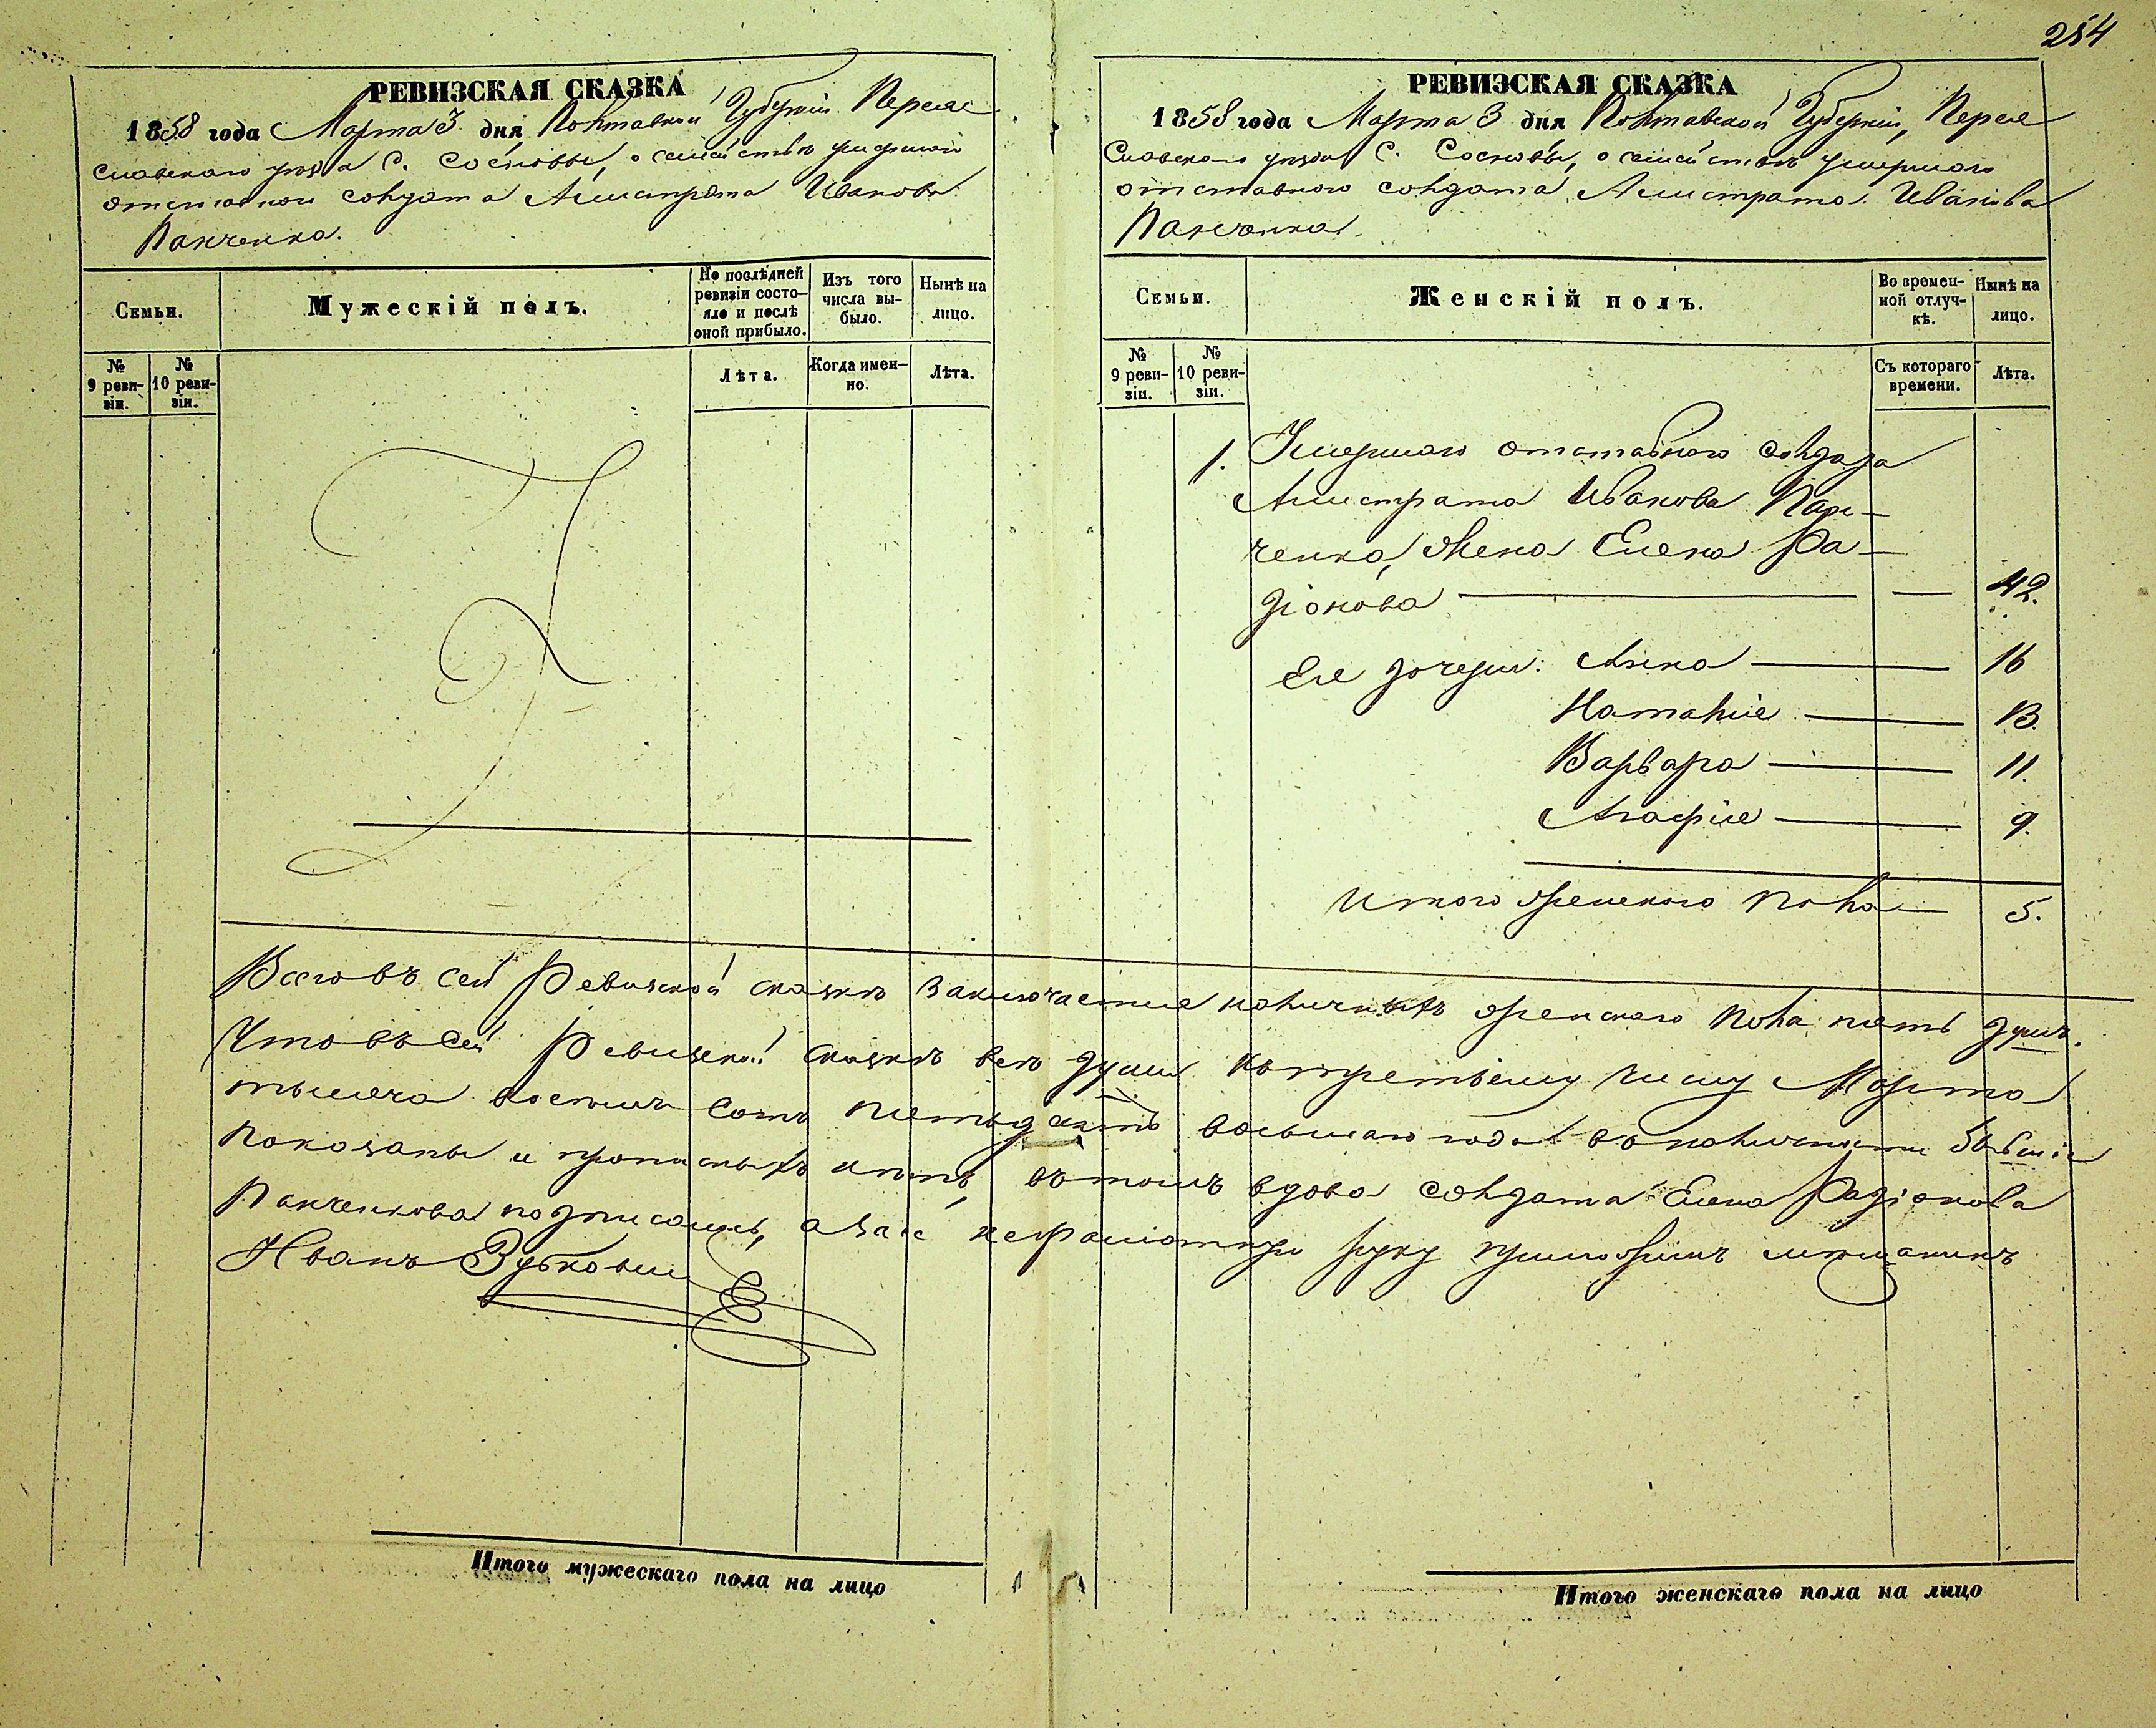 254
РЕВИЗСКАЯ СКАЗКА
1858 года Марта 3 дня Полтавской Губерніи Переяс
славскаго уезда С. Сосновы, о семействѣ умершаго
отставного солдата Алистрата Иванова
Панченка.
Семьи.
Мужескій полъ.
По послѣдней ревизіи состояло и послѣ оной прибыло.
Изъ того числа выбыло.
Нынѣ на лицо.
№ 9 ревизіи.
№ 10 ревизіи.
Лѣта.
Когда именно.
Лѣта.
РЕВИЗСКАЯ СКАЗКА
1858 года Марта 3 дня Полтавской Губерніи, Перея
славскаго уезда С. Сосновы, о семействѣ умершаго
отставного солдата Алистрата Иванова
Панченка.
Семьи.
Женскій полъ.
Во временной отлучкѣ.
Нынѣ на лицо.
№ 9 ревизіи.
№ 10 ревизіи.
Съ котораго времени.
Лѣта.
1. Умершаго отставного солдата
Алистрата Иванова Пан-
ченка, жена Елена Ра-
діонова — 42.
Ее дочери: Анна — 16
Наталия — 13.
Варвара — 11.
Агафия — 9.
Итого женского пола — 5.
Всего въ сей Ревизской сказкѣ заключается наличныхъ женского пола пять душъ.
Что въ сей Ревизской сказкѣ всѣ души къ третьему числу Марта
тысяча восемь сотъ пятьдесятъ восьмаго года въ наличности бывшія
показаны и прописныхъ нѣтъ, въ томъ вдова солдата Елена Радіонова
Панченкова подписалась, а за нее неграмотную руку приложилъ мѣщанинъ
Иванъ
Итого мужескаго пола на лицо
Итого женскаго пола на лицо